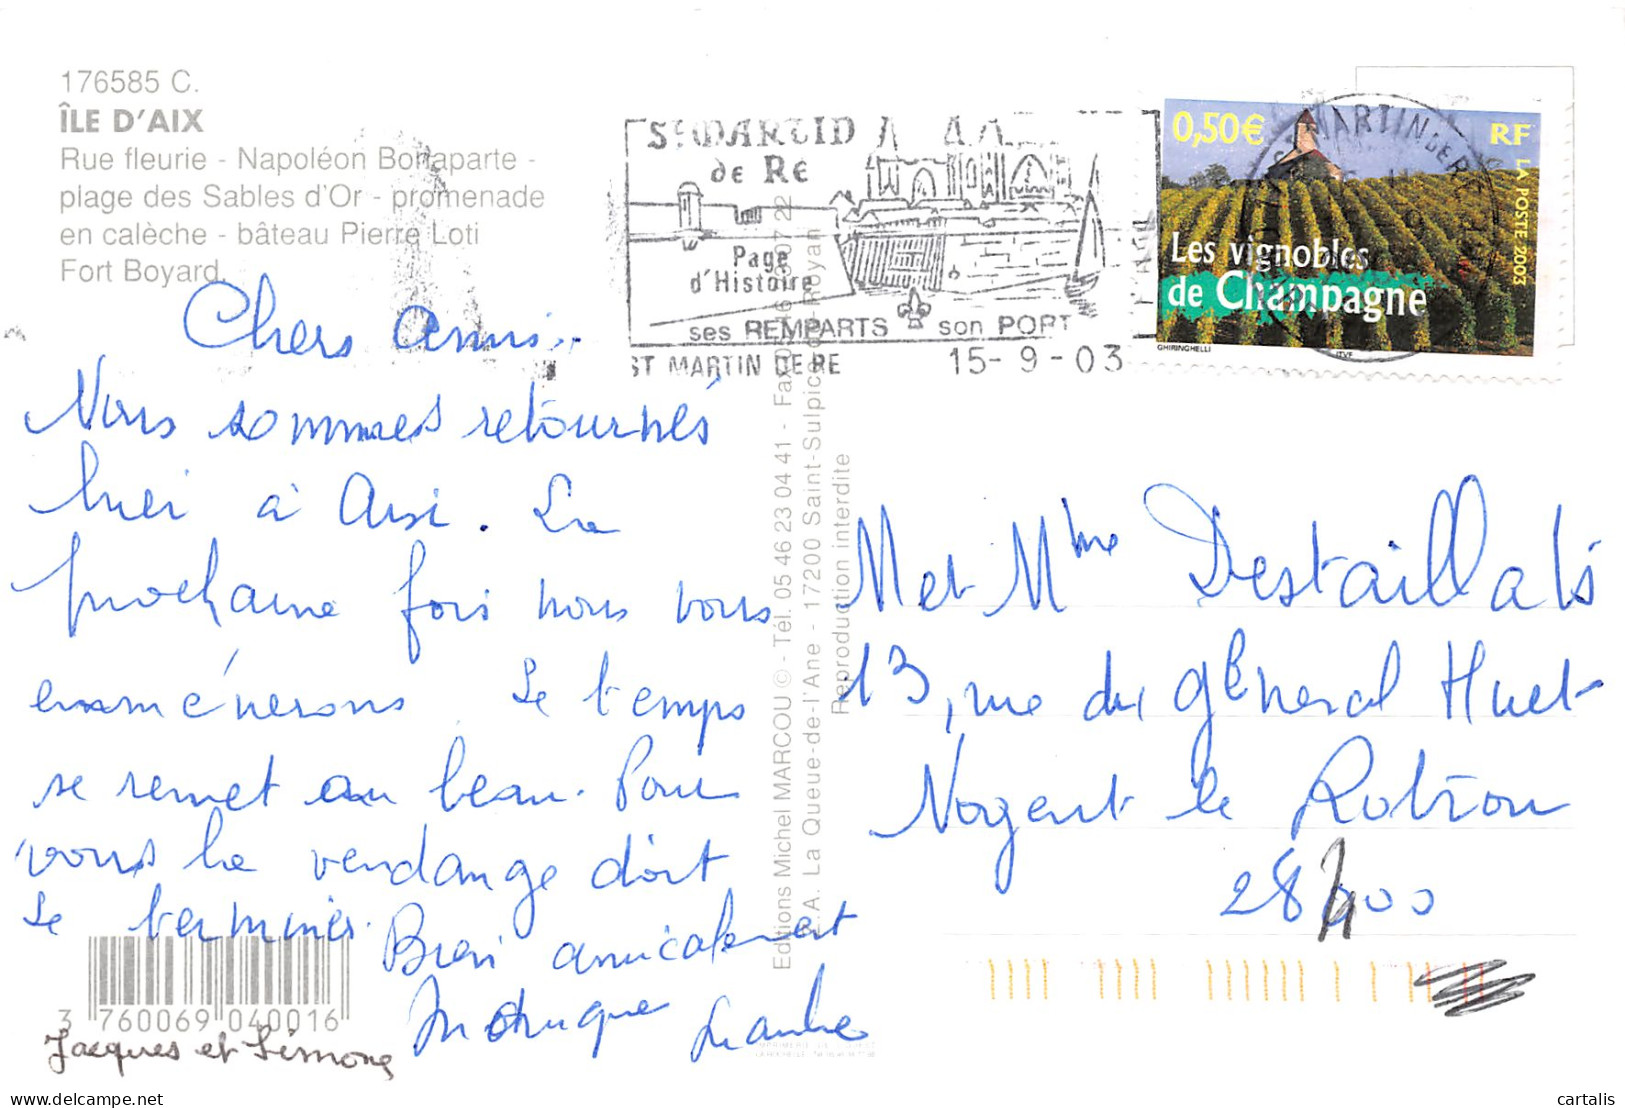 176585 C.
ÎLE D'AIX
Rue fleurie - Napoléon Bonaparte -
plage des Sables d'Or - promenade
en calèche - bâteau Pierre Loti
Fort Boyard.
ST MARTIN
de RE
Page
d'Histoire
ses REMPARTS son PORT
ST MARTIN DE RE 15-9-03
0,50€ RF
LA POSTE 2003
Les vignobles
de Champagne
GHIRINGHELLI ITVF
Chers amis.
Nous sommes retournés
hier à Aix. La
prochaine fois nous vous
emménerons. Le temps
se remet au beau. Pour
vous la vendange doit
se terminer.
Bien amicalement
Monique
Jacques et Simone
Editions Michel MARCOU © - Tél. 05 46 23 04 41 - Fax 05 46 07 22
S.A. La Queue-de-l'Ane - 17200 Saint-Sulpice-de-Royan
Reproduction interdite
M et Mme Destaillats
13, rue du général Huet
Nogent le Rotrou
28400
3 760069 040016
cartalis